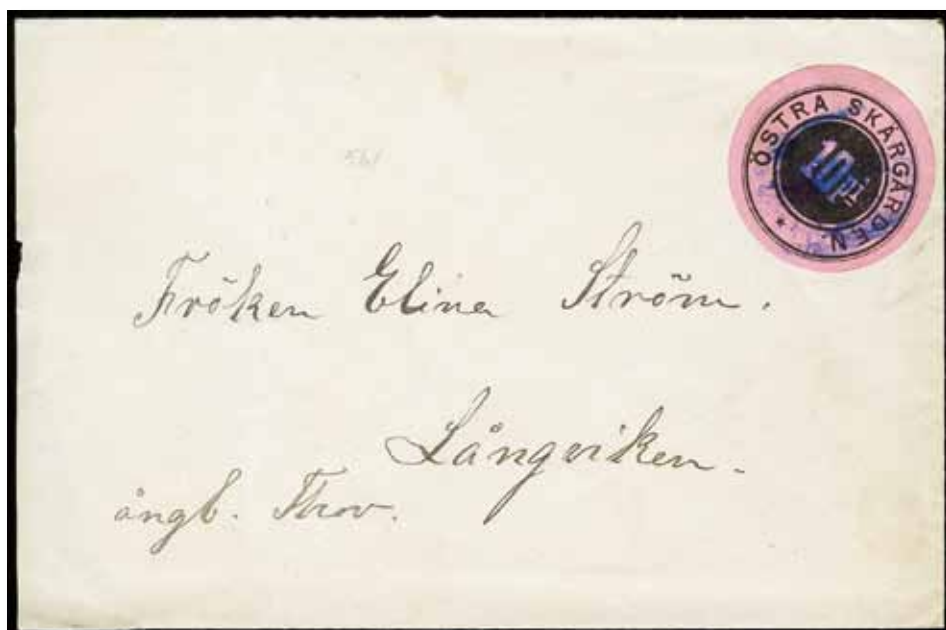 ÖSTRA SKÄRGÅRDEN.
10
561
Fröken Elina Ström.
Långviken.
ångb. Thor.